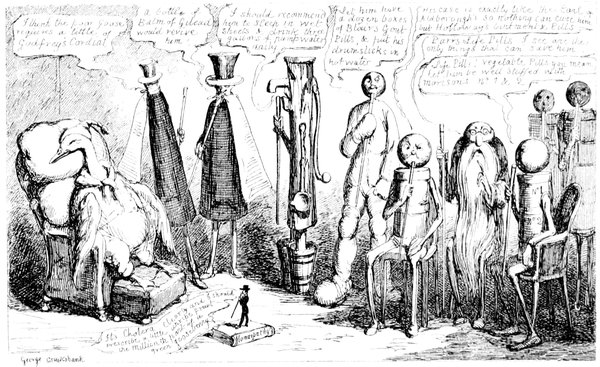 I think the poor goose
requires a bottle of
Godfrey's Cordial
a bottle
Balm of Gilead
would revive
him
I should recommend
him to sleep in wet
sheets & drink three
gallons of pump water
daily
Let him have
a dozen boxes
of Blair's Gout
Pills & put his
drumsticks in
hot water
his case is exactly like the Earl of
Aldborough's so nothing can cure him
but Holloway's ointment & Pills
Parr's Life Pills! are the
only things that can save him
Life Pills! Vegetable Pills you mean
let him be well stuffed with
Morison's Nº 1 & 2
It's Cholera
prescribe
the millionth part of a
Homœopathy
George Cruikshank